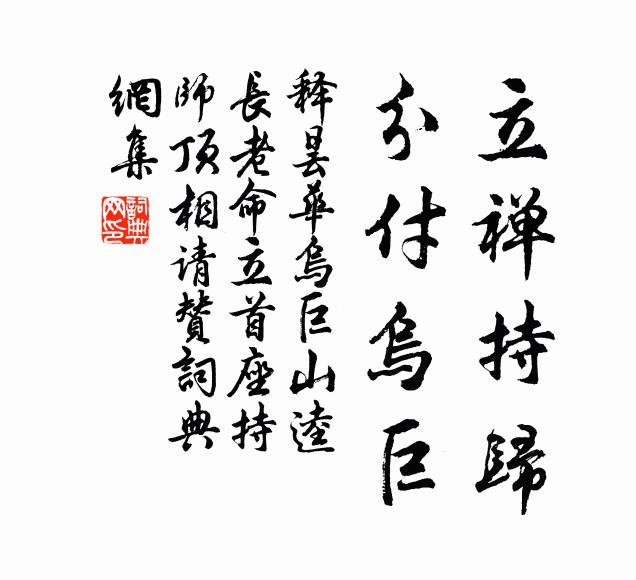 立禅持歸
分付烏巨
释曇華烏巨山逵
長老命立首座持
師頂相请賛詞典
網集
詞典網印